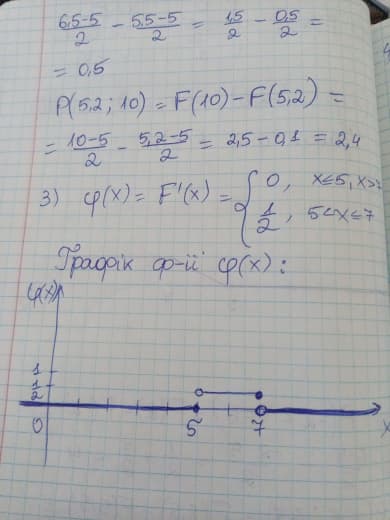 6,5-5/2 - 5,5-5/2 = 1,5/2 - 0,5/2 =
= 0,5
P(5,2; 10) = F(10) - F(5,2) =
= 10-5/2 - 5,2-5/2 = 2,5 - 0,1 = 2,4
3) φ(x) = F'(x) = { 0, x≤5, x>7
1/2, 5<x≤7
Графік ф-ії φ(x):
φ(x)
1
1/2
0 5 7 x